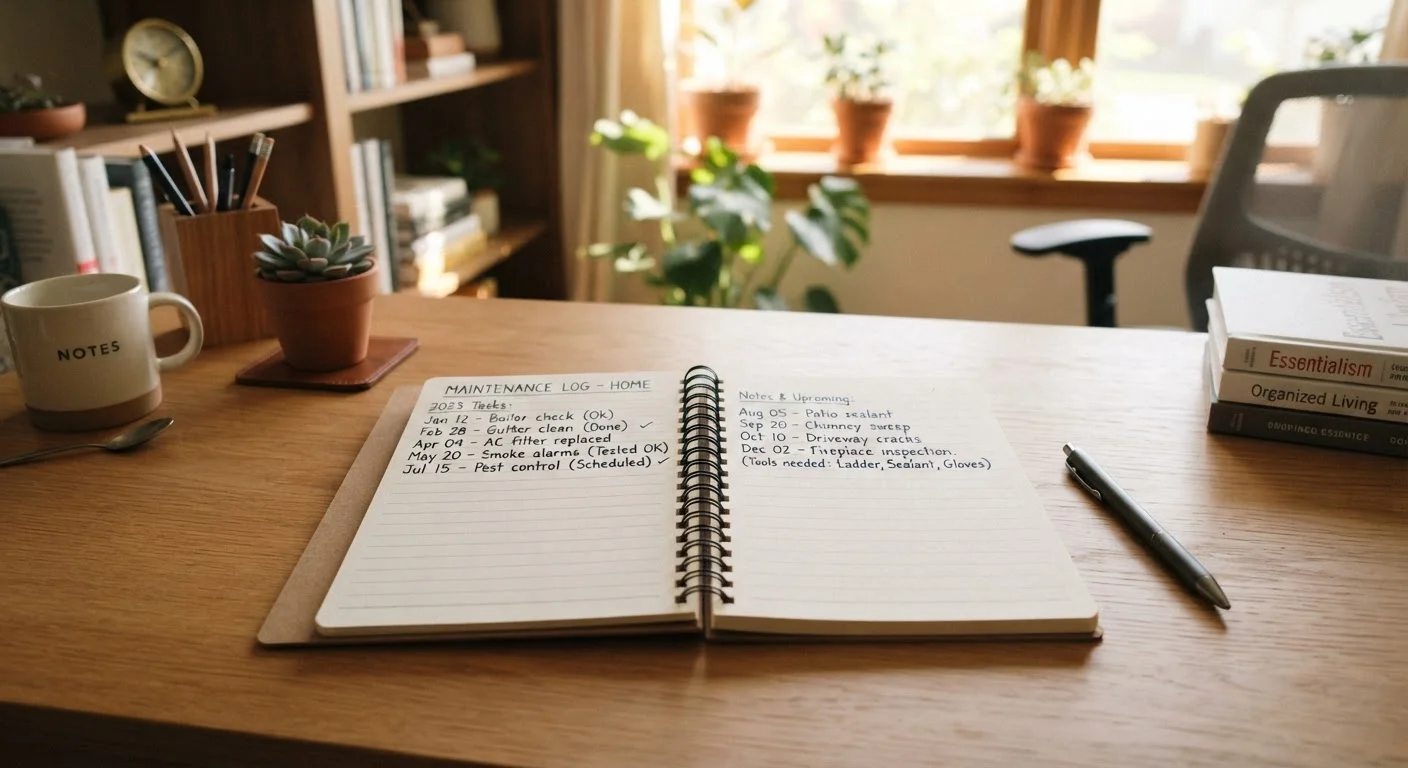 NOTES
MAINTENANCE LOG - HOME
Jan 12 - Boiler check (Ok)
Feb 28 - Gutter clean (Done) ✓
Apr 04 - AC filter replaced
May 20 - Smoke alarms (Tested OK)
Jul 15 - Pest control (Scheduled) ✓
Notes & Upcoming:
Aug 05 - Patio sealant
Sep 20 - Chimney sweep
Oct 10 - Driveway cracks
Dec 02 - Fireplace inspection.
(Tools needed: Ladder, Sealant, Gloves)
Essentialism
Organized Living